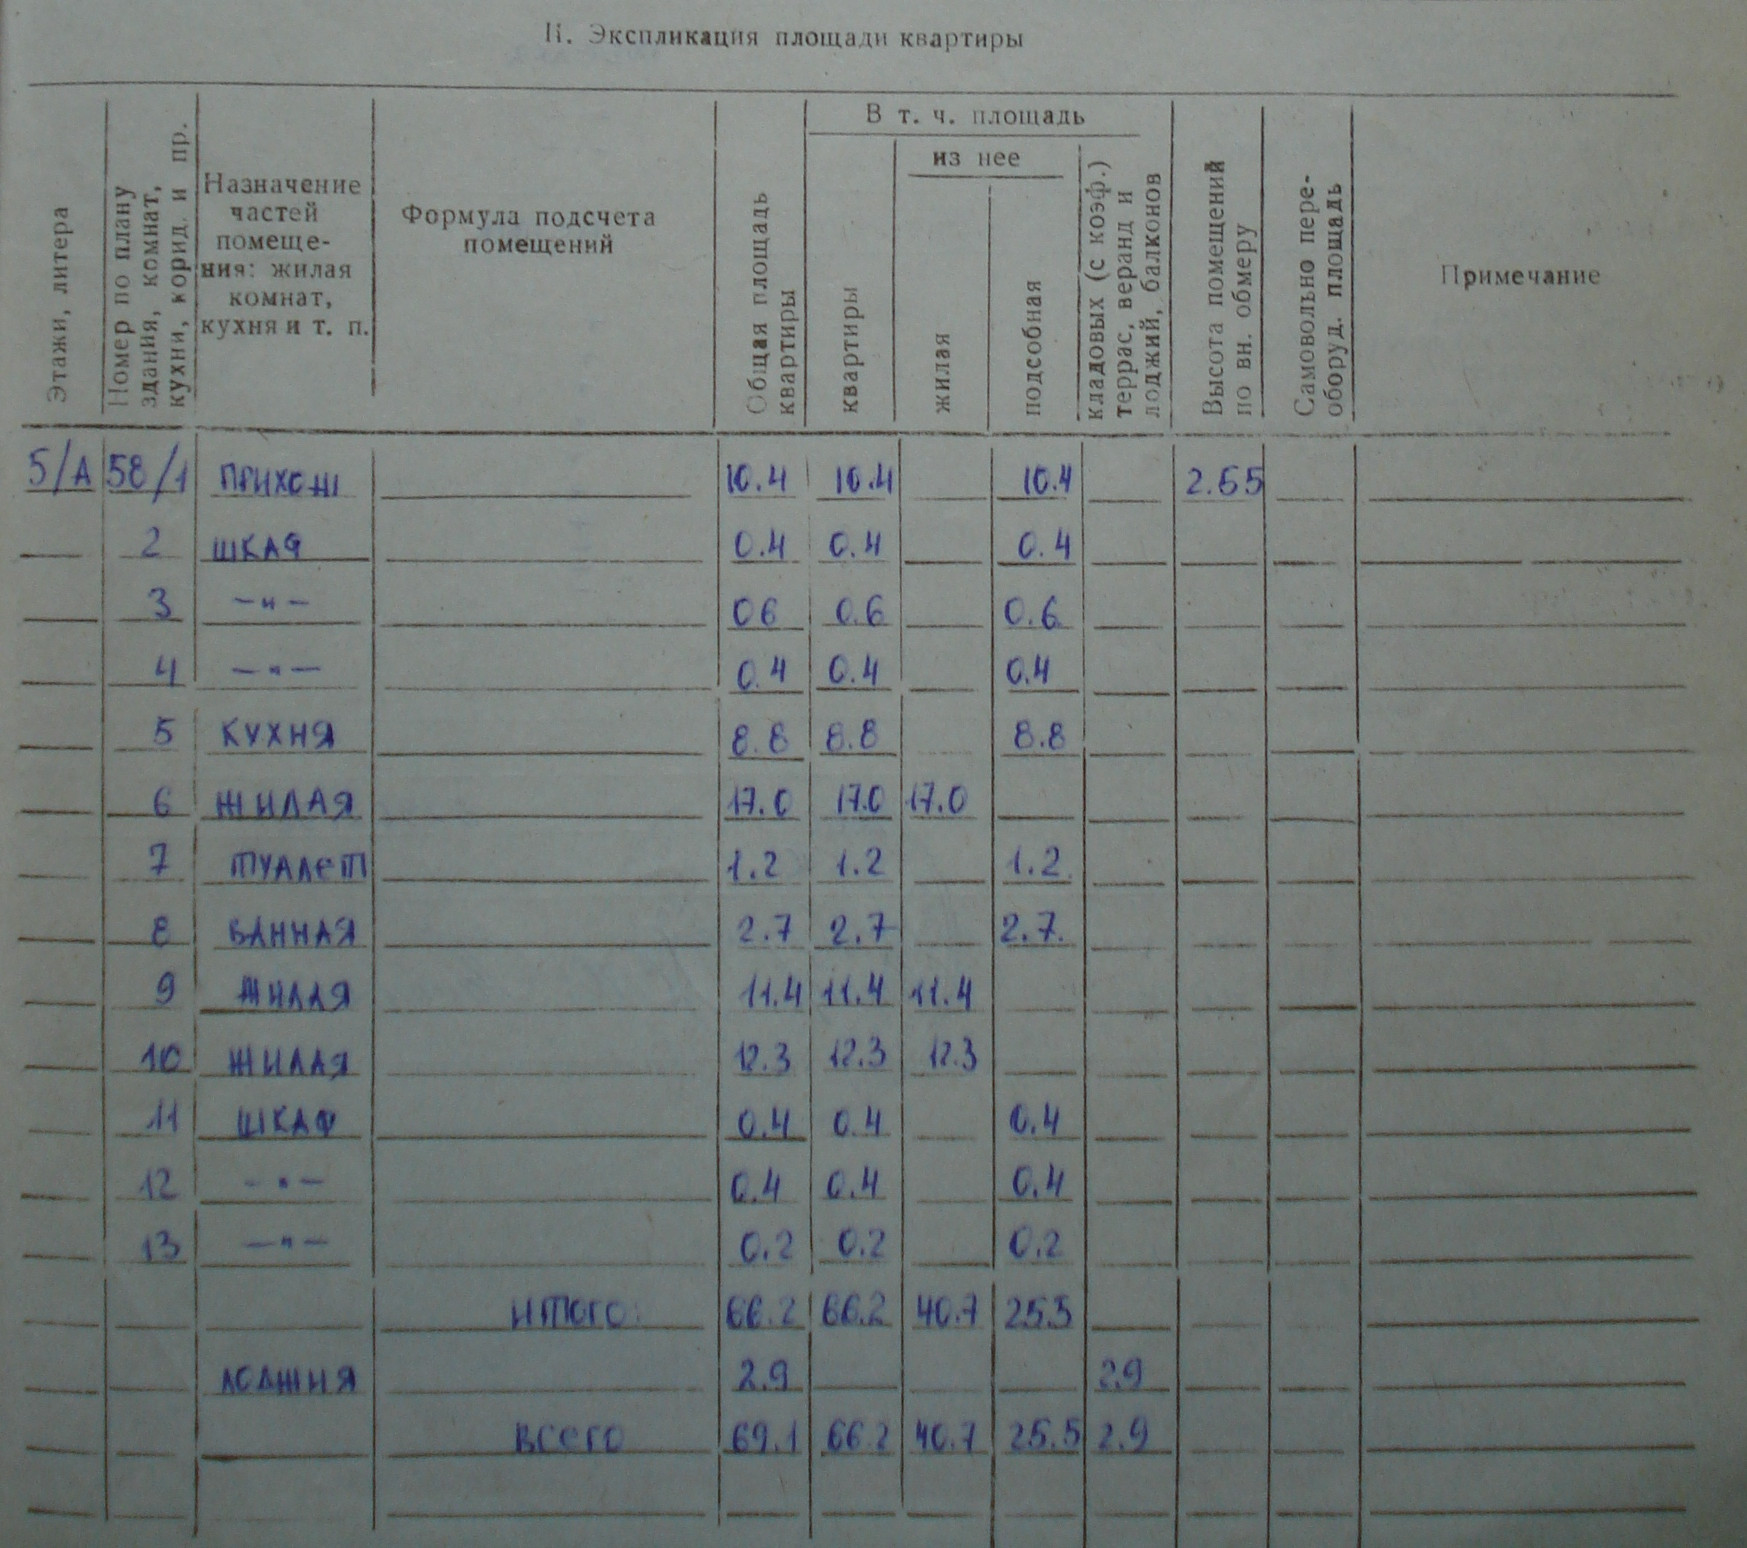 II. Экспликация площади квартиры
Этажи, литера
Номер по плану
здания, комнат,
кухни, корид. и пр.
Назначение
частей
помеще-
ния: жилая
комнат,
кухня и т. п.
Формула подсчета
помещений
Общая площадь
квартиры
В т. ч. площадь
квартиры
из нее
жилая
подсобная
кладовых (с коэф.)
террас, веранд и
лоджий, балконов
Высота помещений
по вн. обмеру
Самовольно пере-
оборуд. площадь
Примечание
5/А 58/1 ПРИХОЖ 10.4 10.4 10.4 2.65
2 ШКАФ 0.4 0.4 0.4
3 —"— 06 0.6 0.6
4 —"— 0.4 0.4 0.4
5 КУХНЯ 8.8 8.8 8.8
6 ЖИЛАЯ 17.0 17.0 17.0
7 ТУАЛЕТ 1.2 1.2 1.2
8 ВАННАЯ 2.7 2.7 2.7.
9 ЖИЛАЯ 11.4 11.4 11.4
10 ЖИЛАЯ 12.3 12.3 12.3
11 ШКАФ 0.4 0.4 0.4
12 —"— 0.4 0.4 0.4
13 —"— 0.2 0.2 0.2
ИТОГО: 66.2 66.2 40.7 25.5
ЛОДЖИЯ 2.9 2.9
ВСЕГО 69.1 66.2 40.7 25.5 2.9